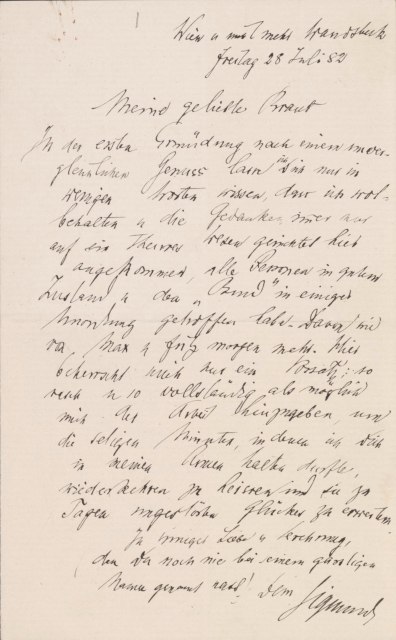 Wien u nicht mehr Wandsbeck
Freitag 28 Juli 82
Meine geliebte Braut
In der ersten Ermüdung nach einem unver-
gleichlichen Genuss lass Dich nur in
wenigen Worten wissen, dass ich wol-
behalten u die Gedanken immer nur
auf ein Theures Wesen gerichtet hier
angekommen, alle Personen in gutem
Zustand u den „Bund" in einiger
Unordnung getroffen habe. Davon
Max u morgen mehr. Hier
beherrscht mich nur ein Vorsatz: so
rasch u so vollständig als möglich
mich der Arbeit hinzugeben, um
die seligen Minuten, in denen ich Dich
in meinen Armen halten durfte,
wiederkehren zu heissen und sie zu
Tagen ungestörten Glückes zu erweitern.
In inniger Liebe u Verehrung,
den Du noch nie bei einem günstigen
Namen genannt hast! Dein Sigmund